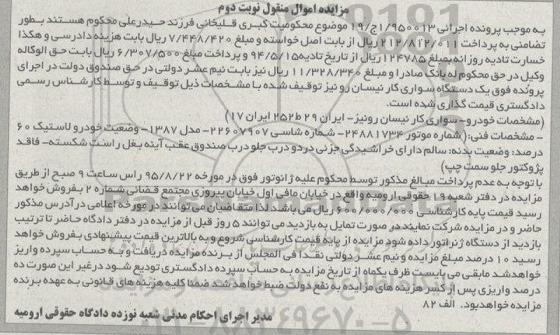 مزایده اموال منقول نوبت دوم
به موجب پرونده اجرائی ۹۵۰۰۱۳/اج/۱۹ موضوع محکومیت کبری قلیخانی فرزند حیدرعلی محکوم هستند بطور
تضامنی به پرداخت ۲۱۲/۸۱۲/۰۱۱ ریال از بابت اصل خواسته و مبلغ ۷/۴۴۸/۴۲۰ ریال بابت هزینه دادرسی و هکذا
خسارت تادیه روزانه بمبلغ ۱۲۴۷۸۵ ریال از تاریخ تادیه ۹۴/۵/۱۵ و پرداخت مبلغ ۶/۳۰۷/۵۰۰ ریال بابت حق الوکاله
وکیل در حق محکوم له بانک صادرا و مبلغ ۱۱/۳۲۸/۳۴۰ ریال نیز بابت نیم عشر دولتی در حق صندوق دولت در اجرای
پرونده فوق یک دستگاه سواری کار نیسان رونیز توقیف شده با مشخصات ذیل توقیف و توسط کارشناس رسمی
دادگستری قیمت گذاری شده است.
(مشخصات خودرو- سواری کار نیسان رونیز- ایران ۲۵۲۵۲۹ ایران ۱۷)
- مشخصات فنی: (شماره موتور ۲۴۸۸۱۷۳۴- شماره شاسی ۲۲۶۰۷۹۰۷- مدل ۱۳۸۷- وضعیت خودرو لاستیک ۶۰
درصد: وضعیت بدنه: سالم دارای خراشیدگی جزئی در دو درب جلو درب صندوق عقب آینه بغل راست شکسته- فاقد
پژوکتور جلو سمت چپ)
با توجه به عدم پرداخت مبالغ مذکور توسط محکوم علیه ژانوتور فوق در مورخه ۹۵/۸/۲۲ راس ساعت ۹ صبح از طریق
مزایده در دفتر شعبه ۱۹ حقوقی ارومیه واقع در خیابان مافی اول خیابان پیروزی مجتمع قضائی شماره ۲ بفروش خواهد
رسید قیمت پایه کارشناسی ۶۰۰/۰۰۰/۰۰۰ ریال می باشد لذا متقاضیان می توانند در مورخه اعلامی در آدرس مذکور
حاضر و در مزایده شرکت نمایند در صورت تمایل به بازدید می توانند ۵ روز قبل از مزایده در دفتر دادگاه حاضر تا ترتیب
بازدید از دستگاه ژنراتور داده شود مزایده از پایه قیمت کارشناسی شروع و به بالاترین قیمت پیشنهادی بفروش خواهد
رسید ۱۰ درصد مبلغ مزایده و نیم عشر دولتی نقدا فی المجلس از برنده مزایده دریافت و به حساب سپرده واریز
خواهد شد مابقی می بایست ظرف یکماه از تاریخ مزایده به حساب سپرده دادگستری تودیع شود در غیر این صورت ده
درصد واریزی پس از کسر هزینه های مزایده به نفع دولت ضبط خواهد شد ضمنا کلیه هزینه های قانونی به عهده برنده
مزایده خواهد بود. الف ۸۲
مدیر اجرای احکام مدنی شعبه نوزده دادگاه حقوقی ارومیه